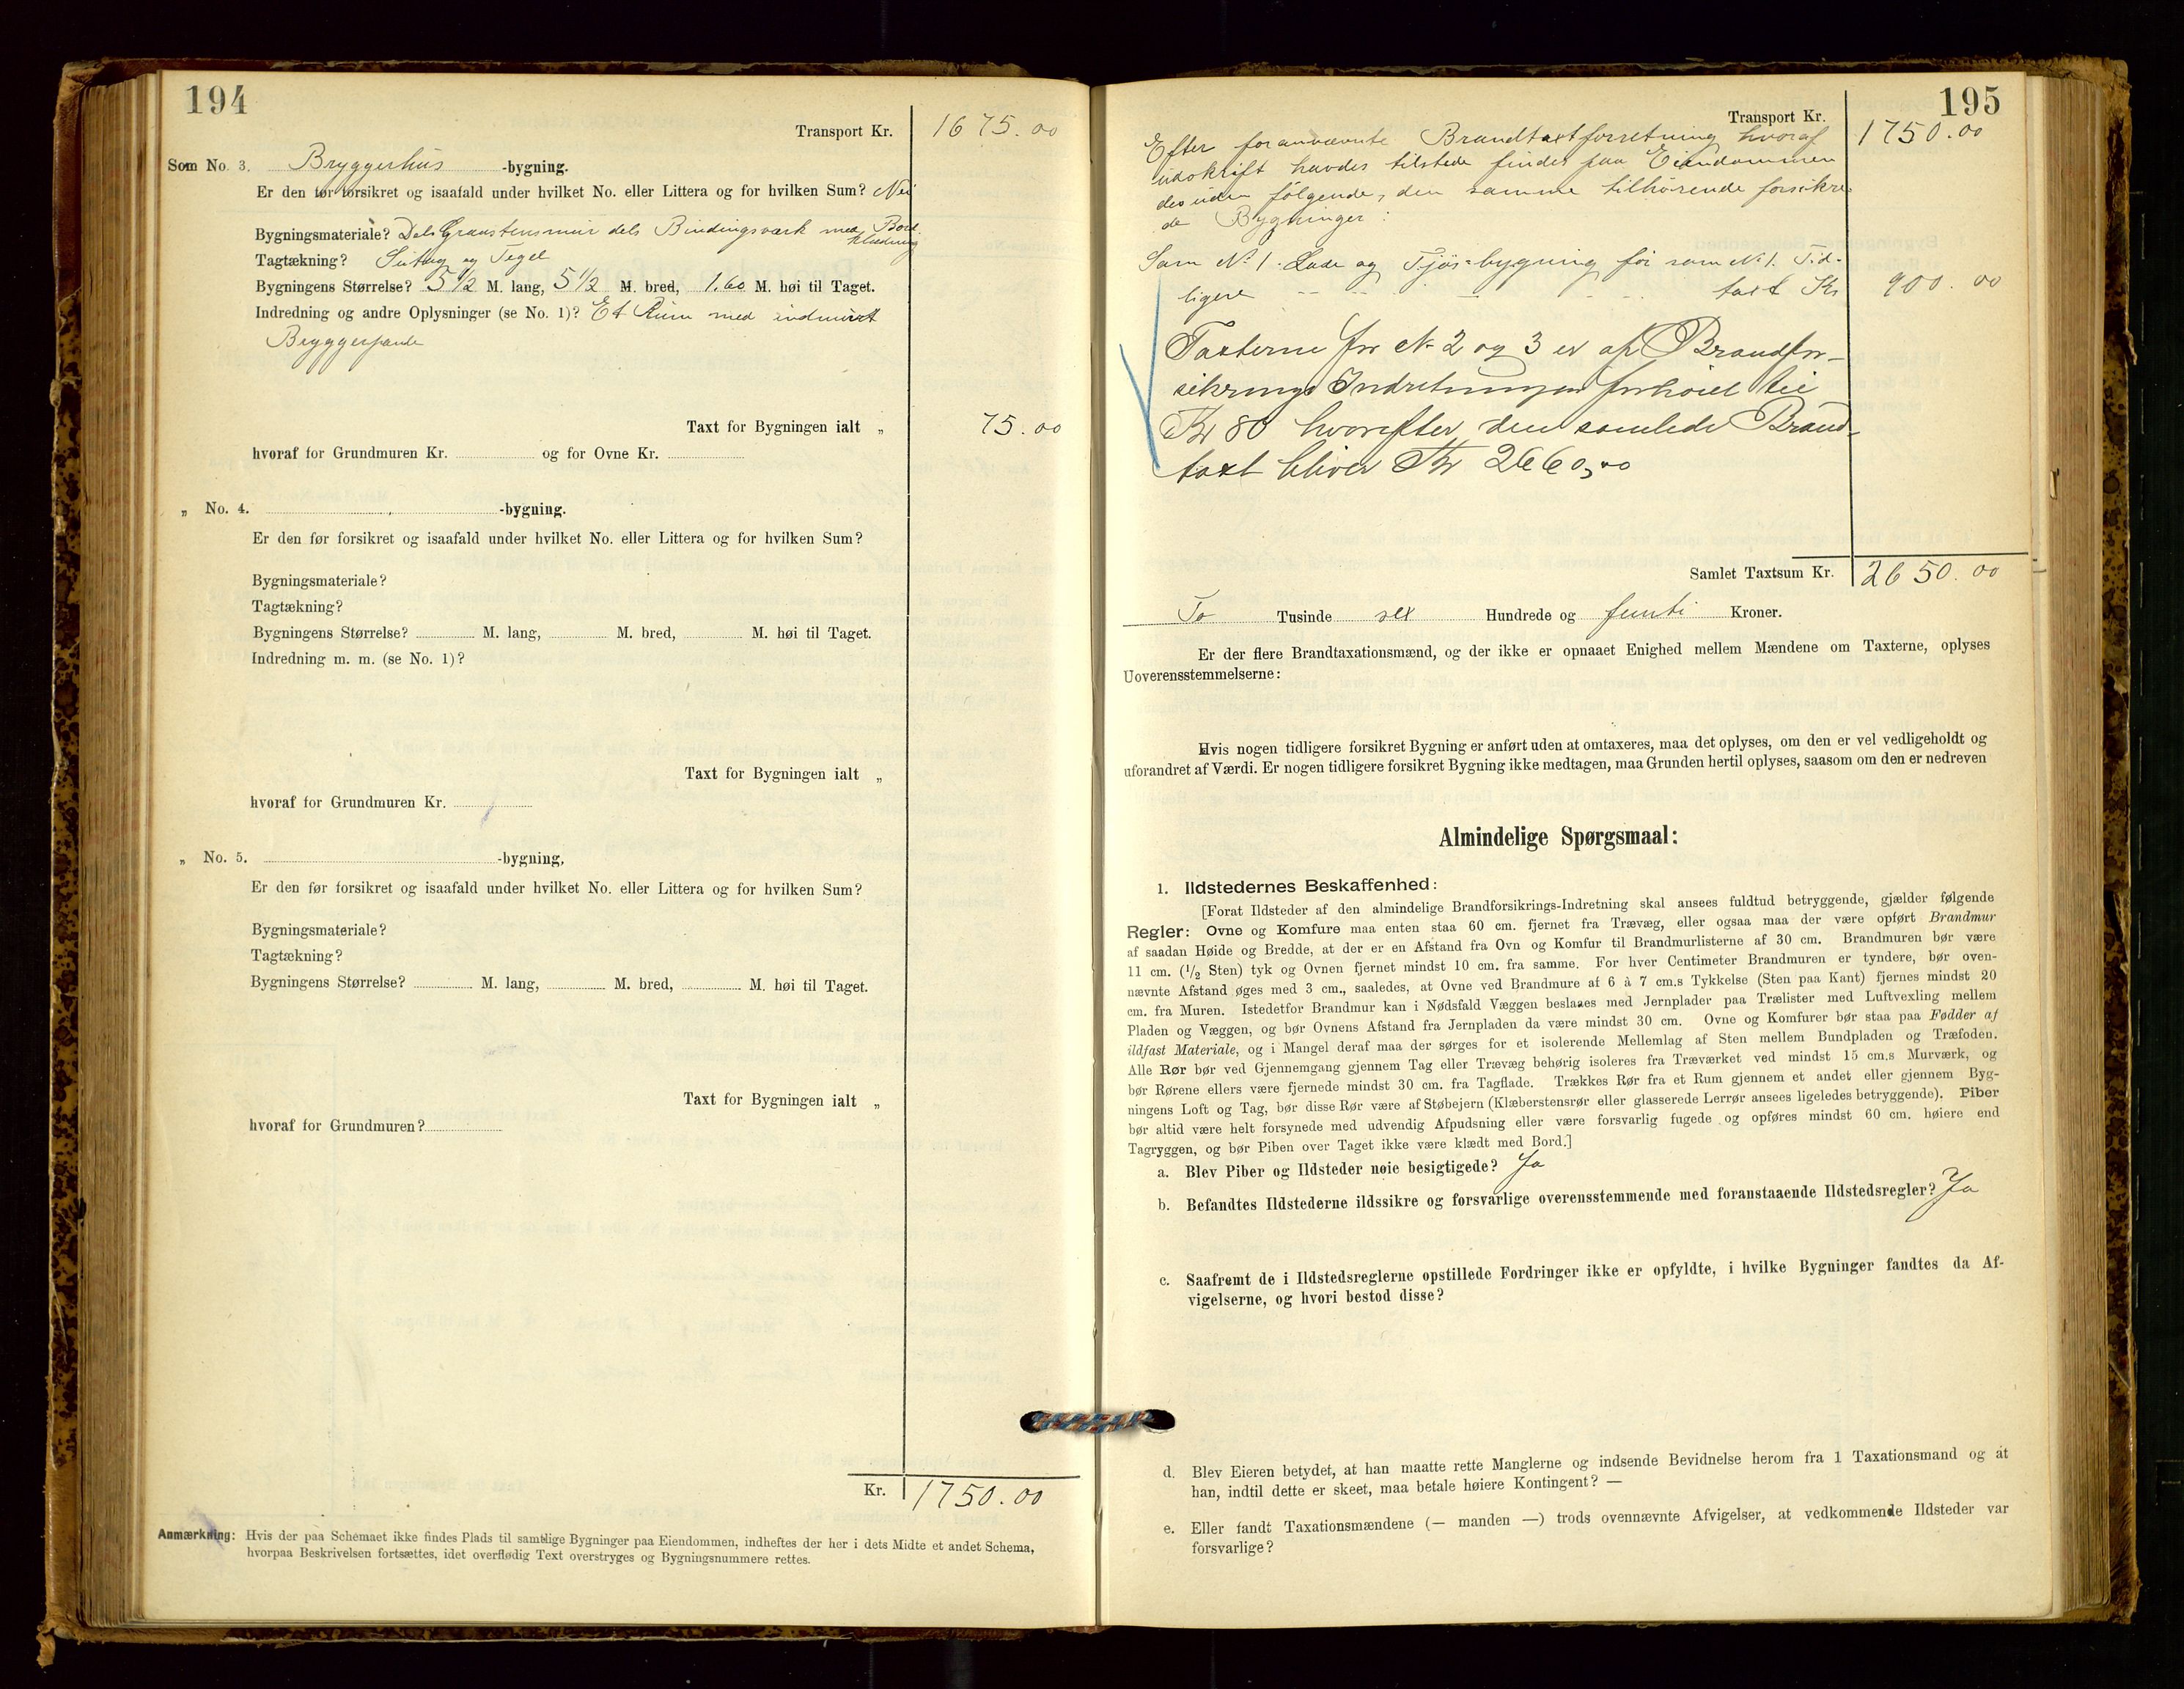 194
Transport Kr. 1675.00
Som No. 3. Bryggerhus -bygning.
Er den før forsikret og isaafald under hvilket No. eller Littera og for hvilken Sum? Nei
Bygningsmateriale? Dels Graastensmur dels Bindingsværk med Bord-
klædning
Tagtækning? og Tegel
Bygningens Størrelse? 5 1/2 M. lang, 5 1/2 M. bred, 1.60 M. høi til Taget.
Indredning og andre Oplysninger (se No. 1)? Et Rum med indmuret
Bryggerpande
Taxt for Bygningen ialt „ 75.00
hvoraf for Grundmuren Kr. og for Ovne Kr.
„ No. 4. -bygning.
Er den før forsikret og isaafald under hvilket No. eller Littera og for hvilken Sum?
Bygningsmateriale?
Tagtækning?
Bygningens Størrelse? M. lang, M. bred, M. høi til Taget.
Indredning m. m. (se No. 1)?
Taxt for Bygningen ialt „
hvoraf for Grundmuren Kr.
„ No. 5. -bygning,
Er den før forsikret og isaafald under hvilket No. eller Littera og for hvilken Sum?
Bygningsmateriale?
Tagtækning?
Bygningens Størrelse? M. lang, M. bred, M. høi til Taget.
Taxt for Bygningen ialt „
hvoraf for Grundmuren?
Kr. 1750.00
Anmærkning: Hvis der paa Schemaet ikke findes Plads til samtlige Bygninger paa Eiendommen, indheftes der her i dets Midte et andet Schema,
hvorpaa Beskrivelsen fortsættes, idet overflødig Text overstryges og Bygningsnummere rettes.
195
Transport Kr. 1750.00
Efter forannævnte Brandtaxtforretning hvoraf
udskrift havdes tilstede findes paa Eiendommen
desuden følgende, den samme tilhørende forsikre-
de Bygninger:
Som No 1. Lade og Fjøs-bygning før som No 1. Tid-
ligere taxt Kr 900.00
Taxterne for No 2 og 3 er af Brandfor-
sikrings Indretningen forhøiet til
Kr 80 hvorefter den samlede Brand-
taxt bliver Kr 2660,00
Samlet Taxtsum Kr. 2650.00
To Tusinde sex Hundrede og femti Kroner.
Er der flere Brandtaxationsmænd, og der ikke er opnaaet Enighed mellem Mændene om Taxterne, oplyses
Uoverensstemmelserne:
Hvis nogen tidligere forsikret Bygning er anført uden at omtaxeres, maa det oplyses, om den er vel vedligeholdt og
uforandret af Værdi. Er nogen tidligere forsikret Bygning ikke medtagen, maa Grunden hertil oplyses, saasom om den er nedreven
Almindelige Spørgsmaal:
1. Ildstedernes Beskaffenhed:
[Forat Ildsteder af den almindelige Brandforsikrings-Indretning skal ansees fuldtud betryggende, gjælder følgende
Regler: Ovne og Komfure maa enten staa 60 cm. fjernet fra Trævæg, eller ogsaa maa der være opført Brandmur
af saadan Høide og Bredde, at der er en Afstand fra Ovn og Komfur til Brandmurlisterne af 30 cm. Brandmuren bør være
11 cm. (1/2 Sten) tyk og Ovnen fjernet mindst 10 cm. fra samme. For hver Centimeter Brandmuren er tyndere, bør oven-
nævnte Afstand øges med 3 cm., saaledes, at Ovne ved Brandmure af 6 à 7 cm.s Tykkelse (Sten paa Kant) fjernes mindst 20
cm. fra Muren. Istedetfor Brandmur kan i Nødsfald Væggen beslaaes med Jernplader paa Trælister med Luftvexling mellem
Pladen og Væggen, og bør Ovnens Afstand fra Jernpladen da være mindst 30 cm. Ovne og Komfurer bør staa paa Fødder af
ildfast Materiale, og i Mangel deraf maa der sørges for et isolerende Mellemlag af Sten mellem Bundpladen og Træfoden.
Alle Rør bør ved Gjennemgang gjennem Tag eller Trævæg behørig isoleres fra Træværket ved mindst 15 cm.s Murværk, og
bør Rørene ellers være fjernede mindst 30 cm. fra Tagflade. Trækkes Rør fra et Rum gjennem et andet eller gjennem Byg-
ningens Loft og Tag, bør disse Rør være af Støbejern (Klæberstensrør eller glasserede Lerrør ansees ligeledes betryggende). Piber
bør altid være helt forsynede med udvendig Afpudsning eller være forsvarlig fugede og opføres mindst 60 cm. høiere end
Tagryggen, og bør Piben over Taget ikke være klædt med Bord.]
a. Blev Piber og Ildsteder nøie besigtigede? Ja
b. Befandtes Ildstederne ildssikre og forsvarlige overensstemmende med foranstaaende Ildstedsregler? Ja
c. Saafremt de i Ildstedsreglerne opstillede Fordringer ikke er opfyldte, i hvilke Bygninger fandtes da Af-
vigelserne, og hvori bestod disse?
d. Blev Eieren betydet, at han maatte rette Manglerne og indsende Bevidnelse herom fra 1 Taxationsmand og at
han, indtil dette er skeet, maa betale høiere Kontingent? —
e. Eller fandt Taxationsmændene (— manden —) trods ovennævnte Afvigelser, at vedkommende Ildsteder var
forsvarlige?